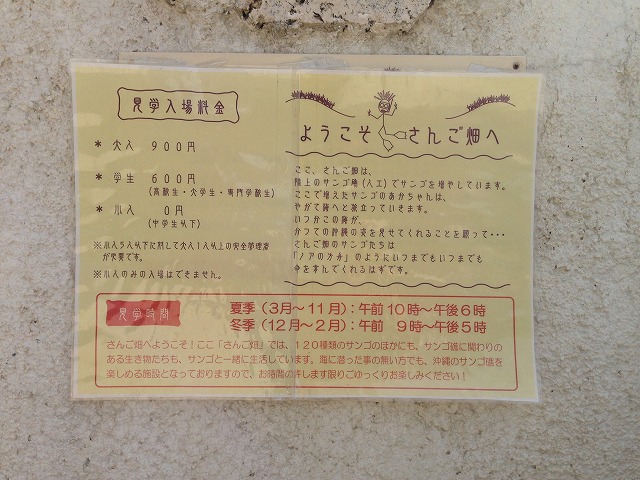 見学入場料金
* 大人 900円
* 学生 600円
(高校生・大学生・専門学校生)
* 小人 0円
(中学生以下)
※小人5人以下に対して大人1人以上の安全管理者
が必要です。
※小人のみの入場はできません。
ようこそ さんご畑へ
ここ、さんご畑は、
陸上のサンゴ礁(人工)でサンゴを増やしています。
ここで増えたサンゴのあかちゃんは、
やがて海へと旅立っていきます。
いつかこの海が、
かつての沖縄の姿を見せてくれることを願って・・・
さんご畑のサンゴたちは
「ノアの方舟」のようにいつまでもいつまでも
命を育んでくれるはずです。
見学時間
夏季(3月〜11月):午前10時〜午後6時
冬季(12月〜2月):午前 9時〜午後5時
さんご畑へようこそ!ここ「さんご畑」では、120種類のサンゴのほかにも、サンゴ礁に関わりの
ある生き物たちも、サンゴと一緒に生活しています。海に潜った事の無い方でも、沖縄のサンゴ礁を
楽しめる施設となっておりますので、お時間の許します限りごゆっくりお楽しみください!